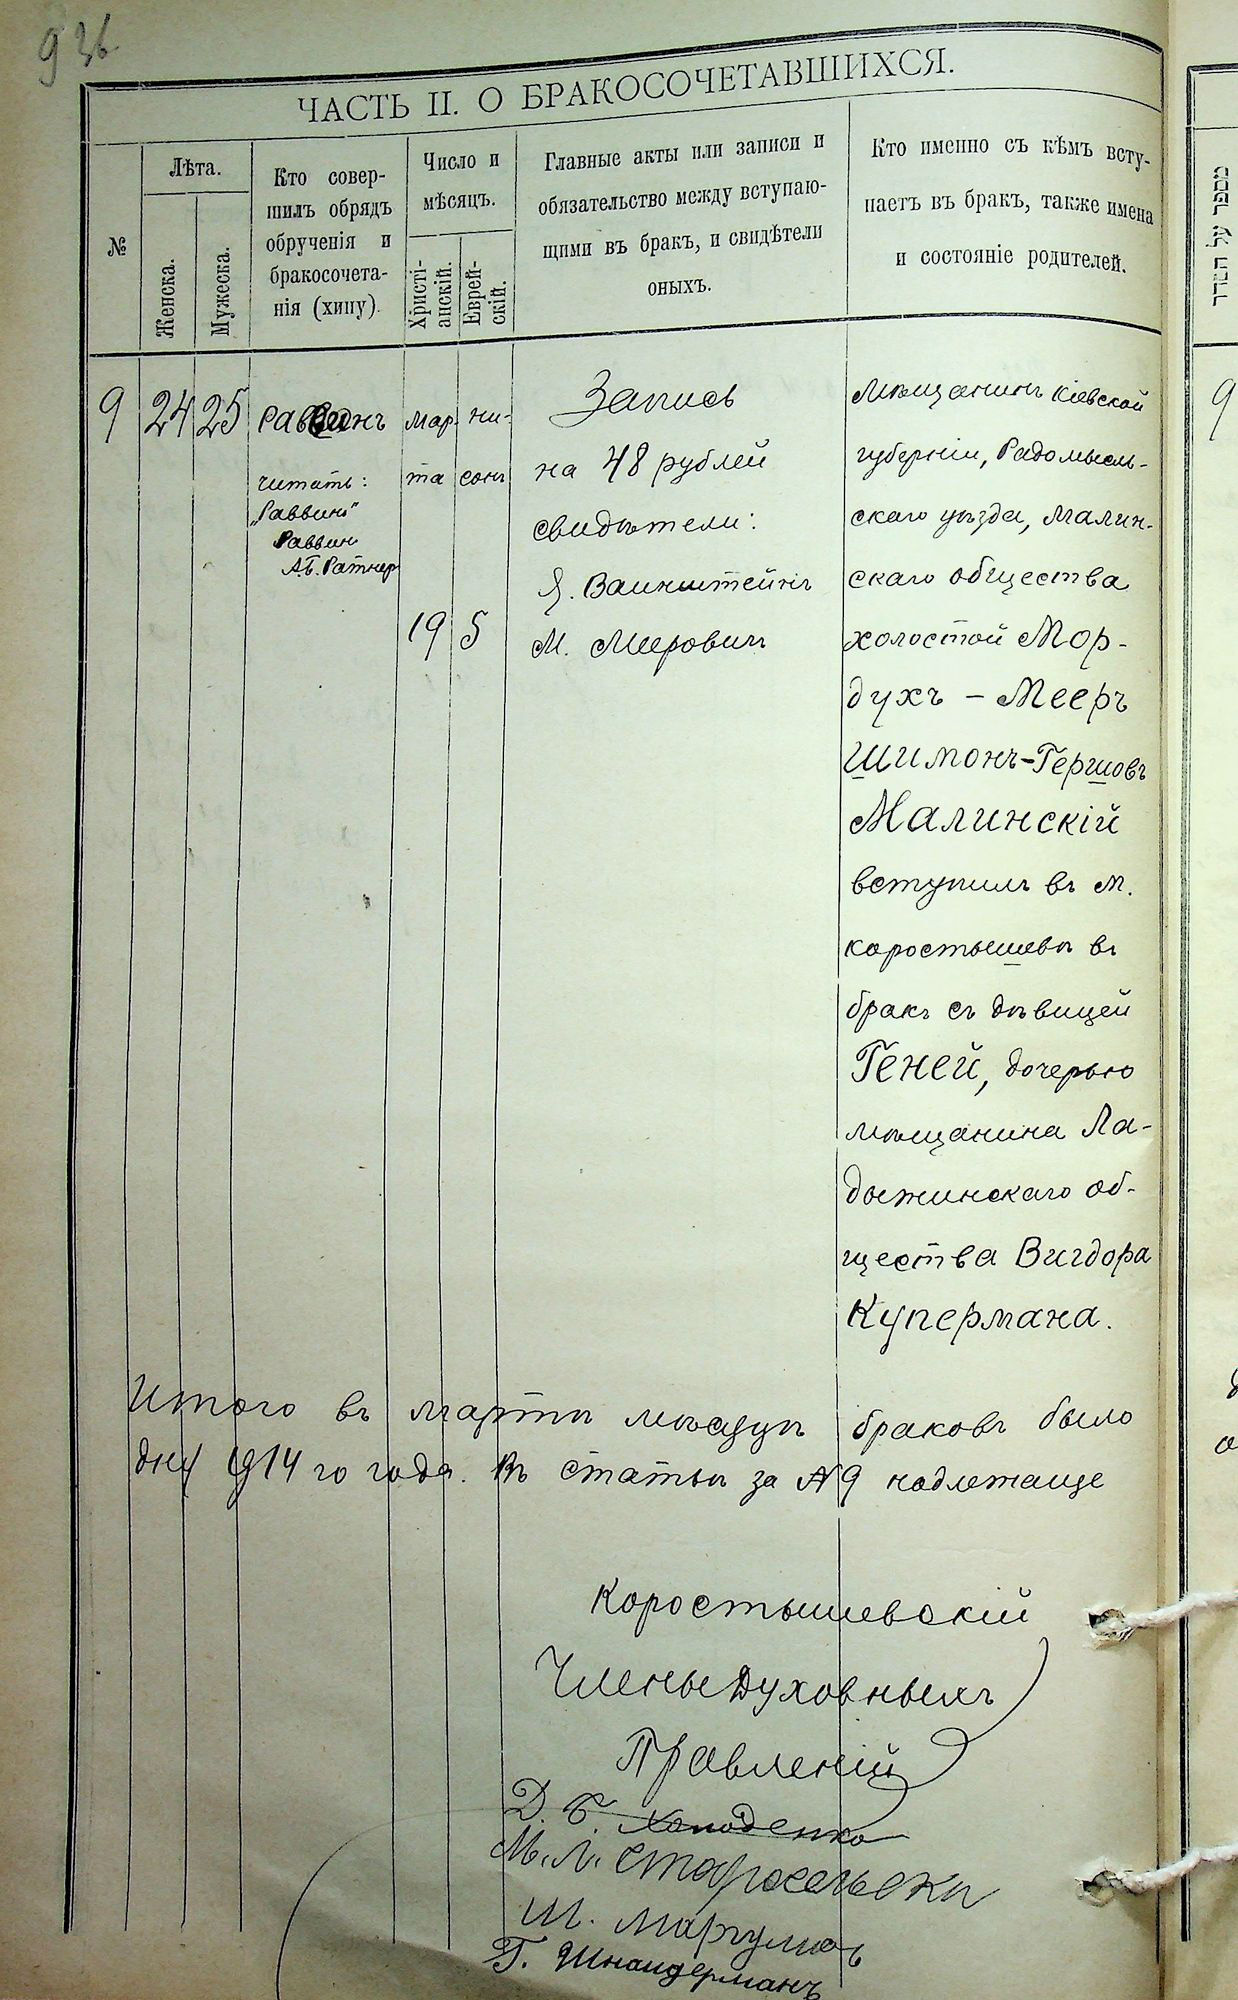 936
ЧАСТЬ II. О БРАКОСОЧЕТАВШИХСЯ.
№
Лѣта.
Женска.
Мужеска.
Кто совер-
шилъ обрядъ
обрученія и
бракосочета-
нія (хипу).
Число и
мѣсяцъ.
Христі-
анскій.
Еврей-
скій.
Главные акты или записи и
обязательство между вступаю-
щими въ бракъ, и свидѣтели
оныхъ.
Кто именно съ кѣмъ всту-
паетъ въ бракъ, также имена
и состояніе родителей.
9
24
25
Раввинъ
читать:
„Раввинъ"
Раввин
А.Б. Ратнер
мар-
та
19
ни-
сонъ
5
Запись
на 48 рублей
свидѣтели:
Я. Ваинштейнъ
М. Мееровичъ
Мѣщанинъ Кіевской
губерніи, Радомысль-
скаго уѣзда, Малин-
скаго общества
холостой Мор-
духъ – Мееръ
Шимонъ-Гершовъ
Малинскій
вступилъ въ м.
Коростышевѣ въ
бракъ съ дѣвицей
Геней, дочерью
мѣщанина Ла-
дыжинскаго об-
щества Вигдора
Купермана.
Итого въ мартѣ мѣсяцѣ браковъ было
1914 го года. Въ статьѣ за № 9 надлежаще
Коростышевскій
Члены Духовныхъ
Правленій
Д. Б. Холоденко
М. Л. Старосельски
Ш. Маргулисъ
Г. Шнаидерманъ
מספר על הסדר
9